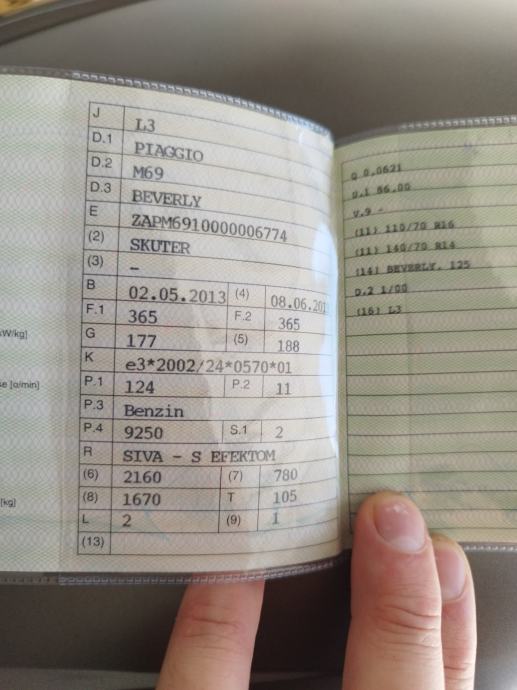 J L3
D.1 PIAGGIO
D.2 M69
D.3 BEVERLY
E ZAPM6910000006774
(2) SKUTER
(3) –
B 02.05.2013 (4) 08.06.201
F.1 365 F.2 365
G 177 (5) 188
K e3*2002/24*0570*01
P.1 124 P.2 11
P.3 Benzin
P.4 9250 S.1 2
R SIVA - S EFEKTOM
(6) 2160 (7) 780
(8) 1670 T 105
L 2 (9) 1
(13)
kW/kg]
se [o/min]
[kg]
Q 0.0621
U.1 86.00
V.9 -
(11) 110/70 R16
(11) 140/70 R14
(14) BEVERLY, 125
D.2 1/00
(16) L3